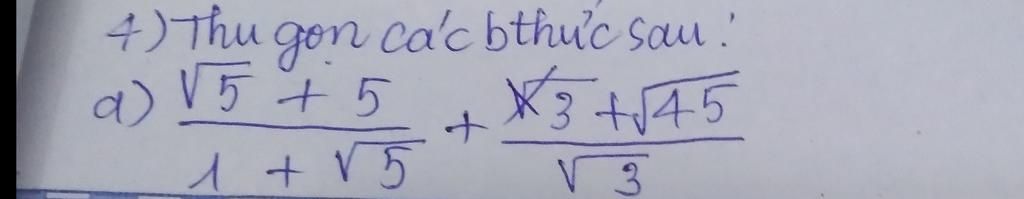 4) Thu gọn các bthức sau:
a) \frac{\sqrt{5} + 5}{1 + \sqrt{5}} + \frac{\sqrt{3} + \sqrt{45}}{\sqrt{3}}